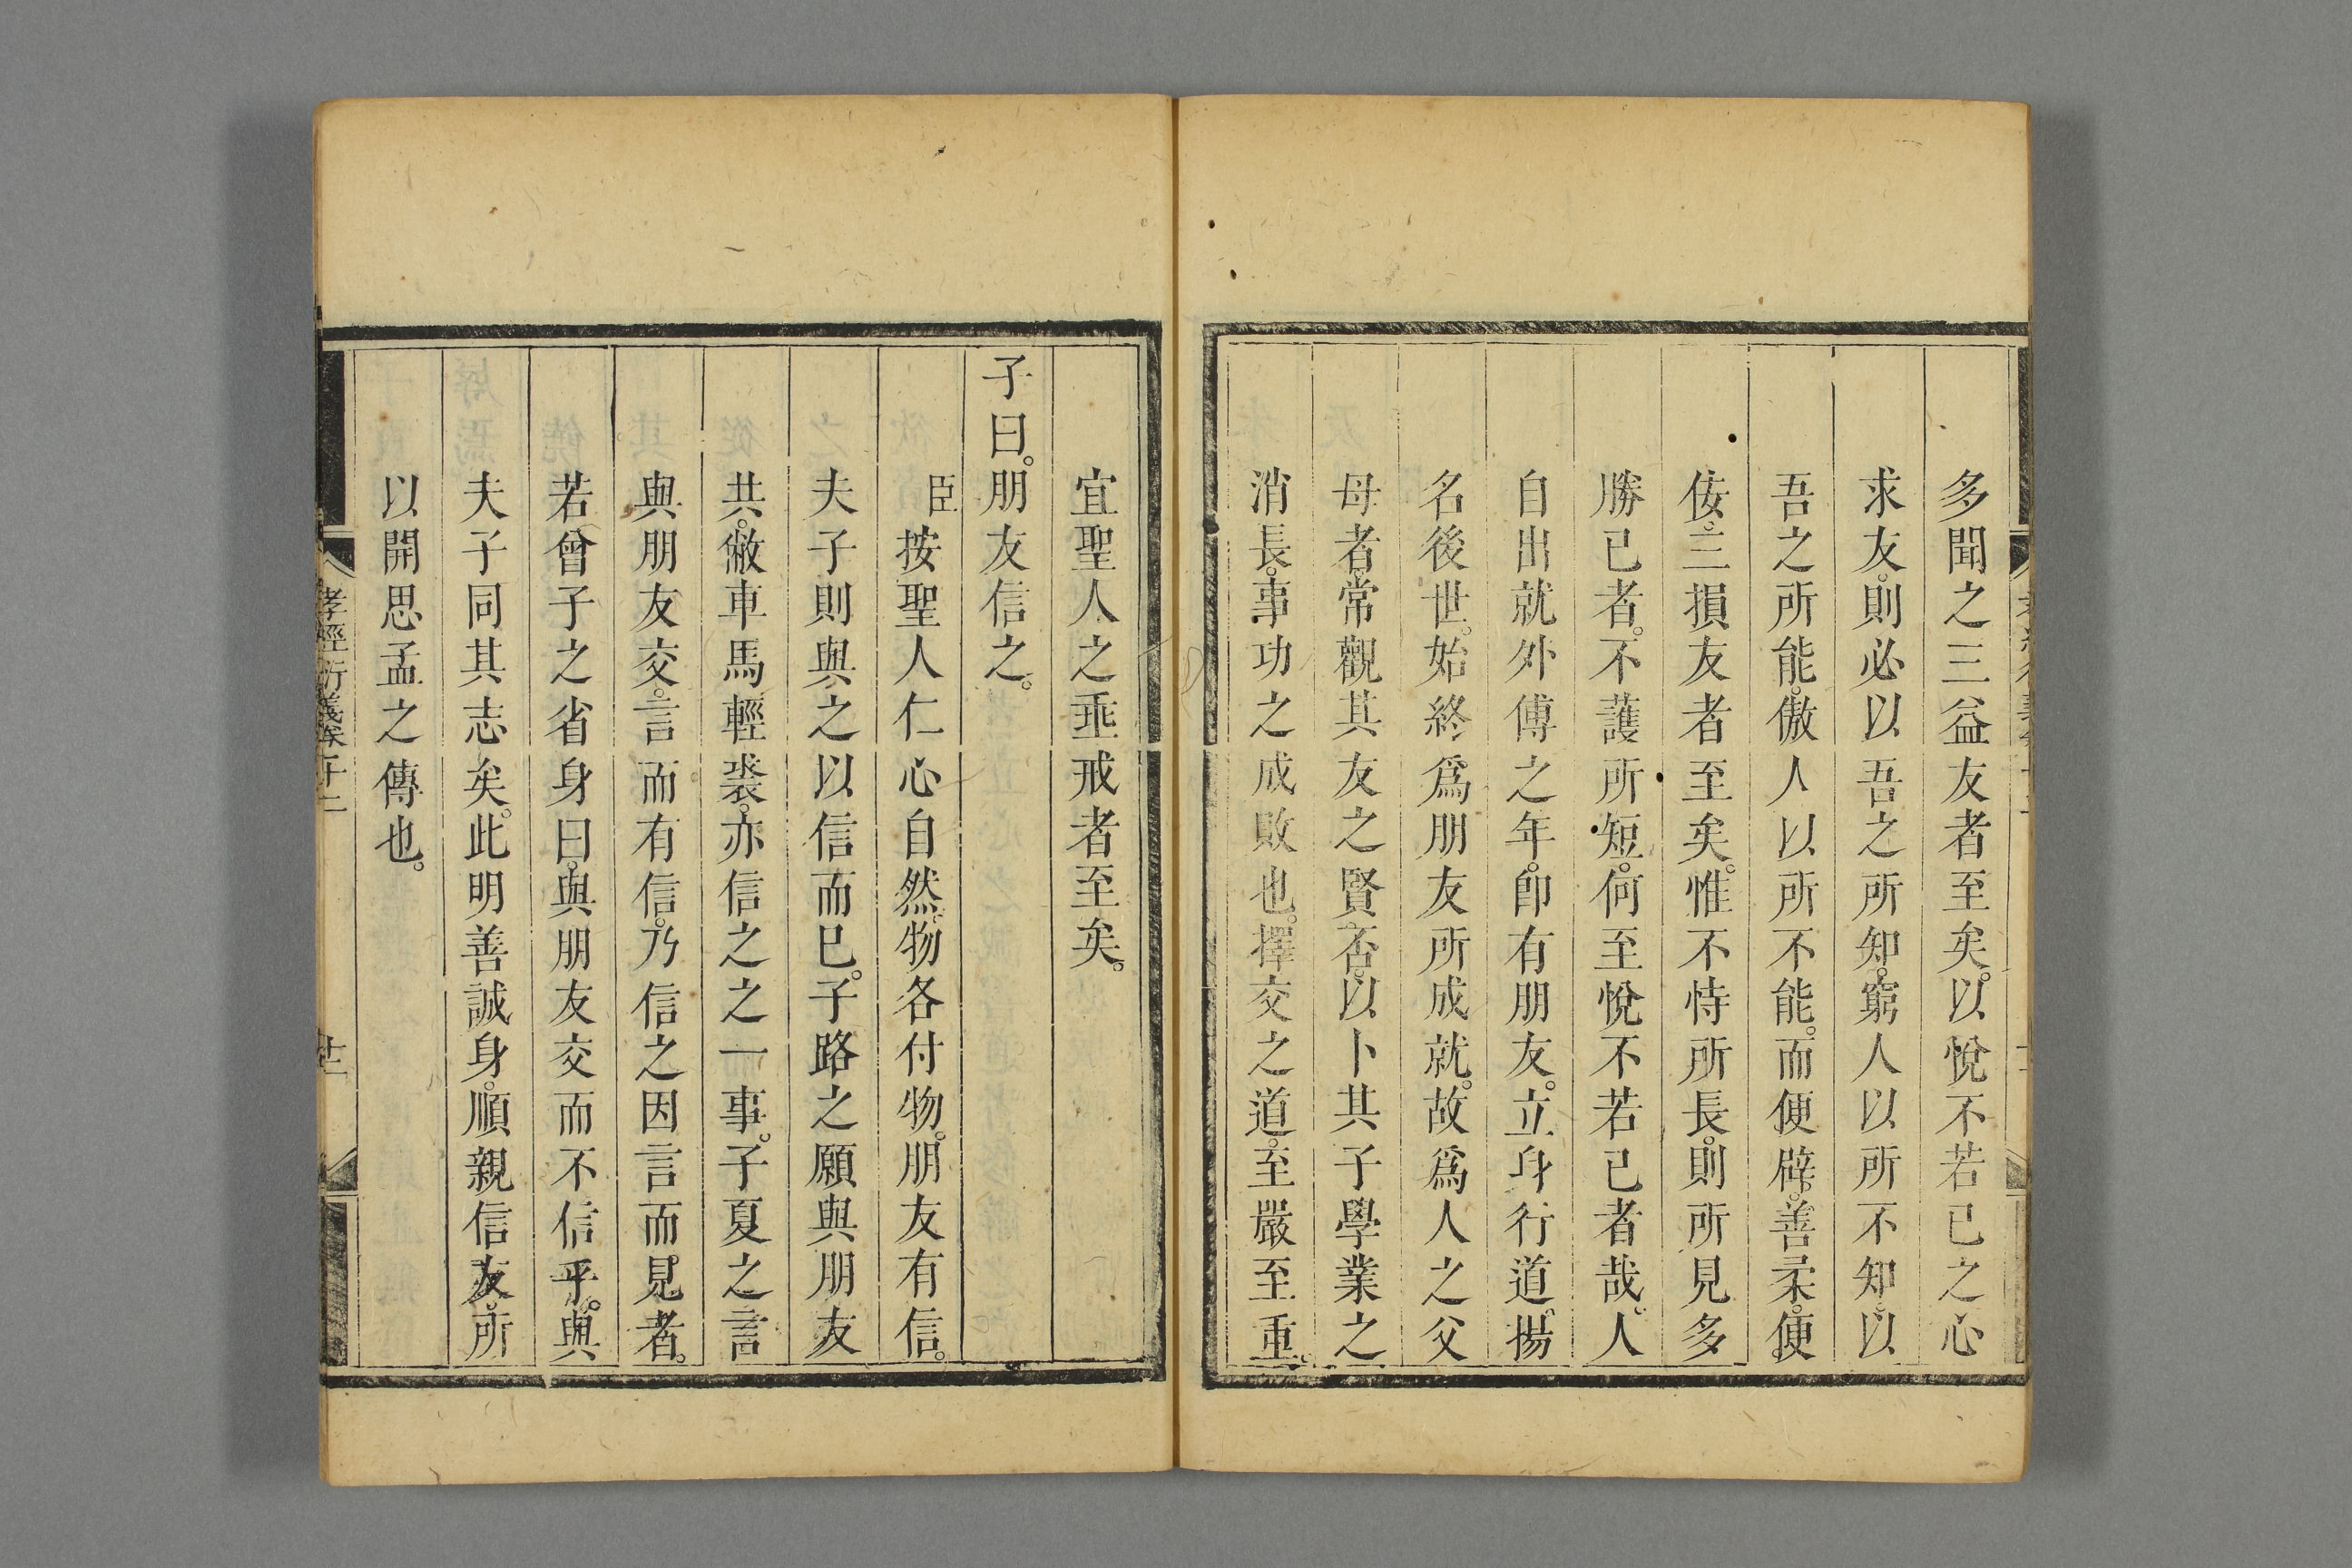 多聞之三益友者至矣。以悅不若已之心
求友。則必以吾之所知。窮人以所不知。以
吾之所能。傲人以所不能。而便辟。善柔。便
佞。三損友者至矣。惟不恃所長。則所見多
勝已者。不護所短。何至悅不若已者哉。人
自出就外傅之年。卽有朋友。立身行道。揚
名後世。始終爲朋友所成就。故爲人之父
母者。常觀其友之賢否。以卜其子學業之
消長。事功之成敗也。擇交之道。至嚴至重。
宜聖人之垂戒者至矣。
子曰。朋友信之。
臣按聖人仁心自然。物各付物。朋友有信。
夫子則與之以信而已。子路之願與朋友
共。敝車馬輕裘。亦信之之一事。子夏之言
與朋友交。言而有信。乃信之因言而見者。
若曾子之省身曰。與朋友交而不信乎。與
夫子同其志矣。此明善誠身。順親信友。所
以開思孟之傳也。
孝經衍義卷